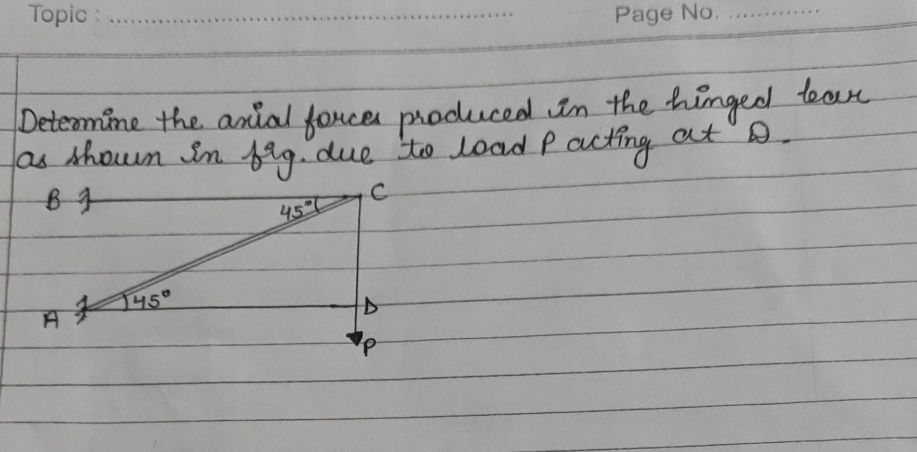 Topic : ..........
Page No. ..........
Determine the axial forces produced in the hinged bars
as shown in fig. due to load P acting at D.
B C
45°
45°
A D
P